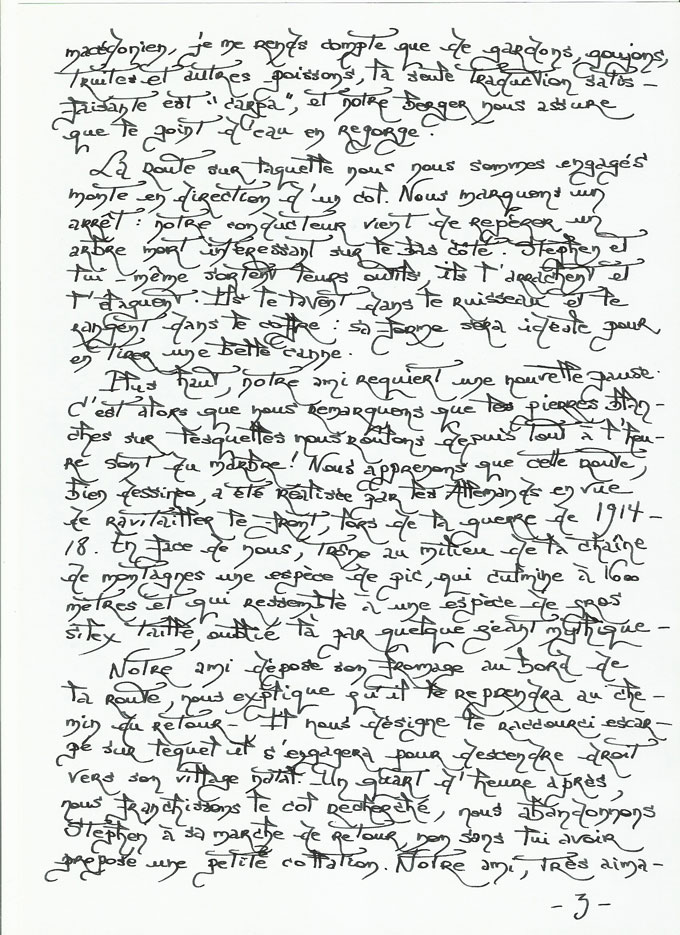 macédonien, je me rends compte que de gardons, goujons,
truites et autres poissons, la seule traduction satis-
faisante est "carpa", et notre berger nous assure
que le point d'eau en regorge.
La route sur laquelle nous nous sommes engagés
monte en direction d'un col. Nous marquons un
arrêt : notre conducteur vient de repérer un
arbre mort intéressant sur le bas côté. Stephen et
lui-même sortent leurs outils, ils l'arrachent et
l'élaguent. Ils le lavent dans le ruisseau et le
rangent dans le coffre : sa forme sera idéale pour
en tirer une belle canne.
Plus haut, notre ami requiert une nouvelle pause.
C'est alors que nous remarquons que les pierres blan-
ches sur lesquelles nous roulons depuis tout à l'heu-
re sont du marbre ! Nous apprenons que celle route,
bien dessinée, a été réalisée par les Allemands en vue
de ravitailler le front, lors de la guerre de 1914-
18. En face de nous, trône au milieu de la chaîne
de montagnes une espèce de pic, qui culmine à 1600
mètres et qui ressemble à une espèce de gros
silex taillé, oublié là par quelque géant mythique -
Notre ami dépose son fromage au bord de
la route, nous explique qu'il le reprendra au che-
min du retour - Il nous désigne le raccourci escar-
pé sur lequel il s'engagera pour descendre droit
vers son village natal. Un quart d'heure après,
nous franchissons le col recherché, nous abandonnons
Stephen à sa marche de retour, non sans lui avoir
proposé une petite collation. Notre ami, très aima-
- 3 -